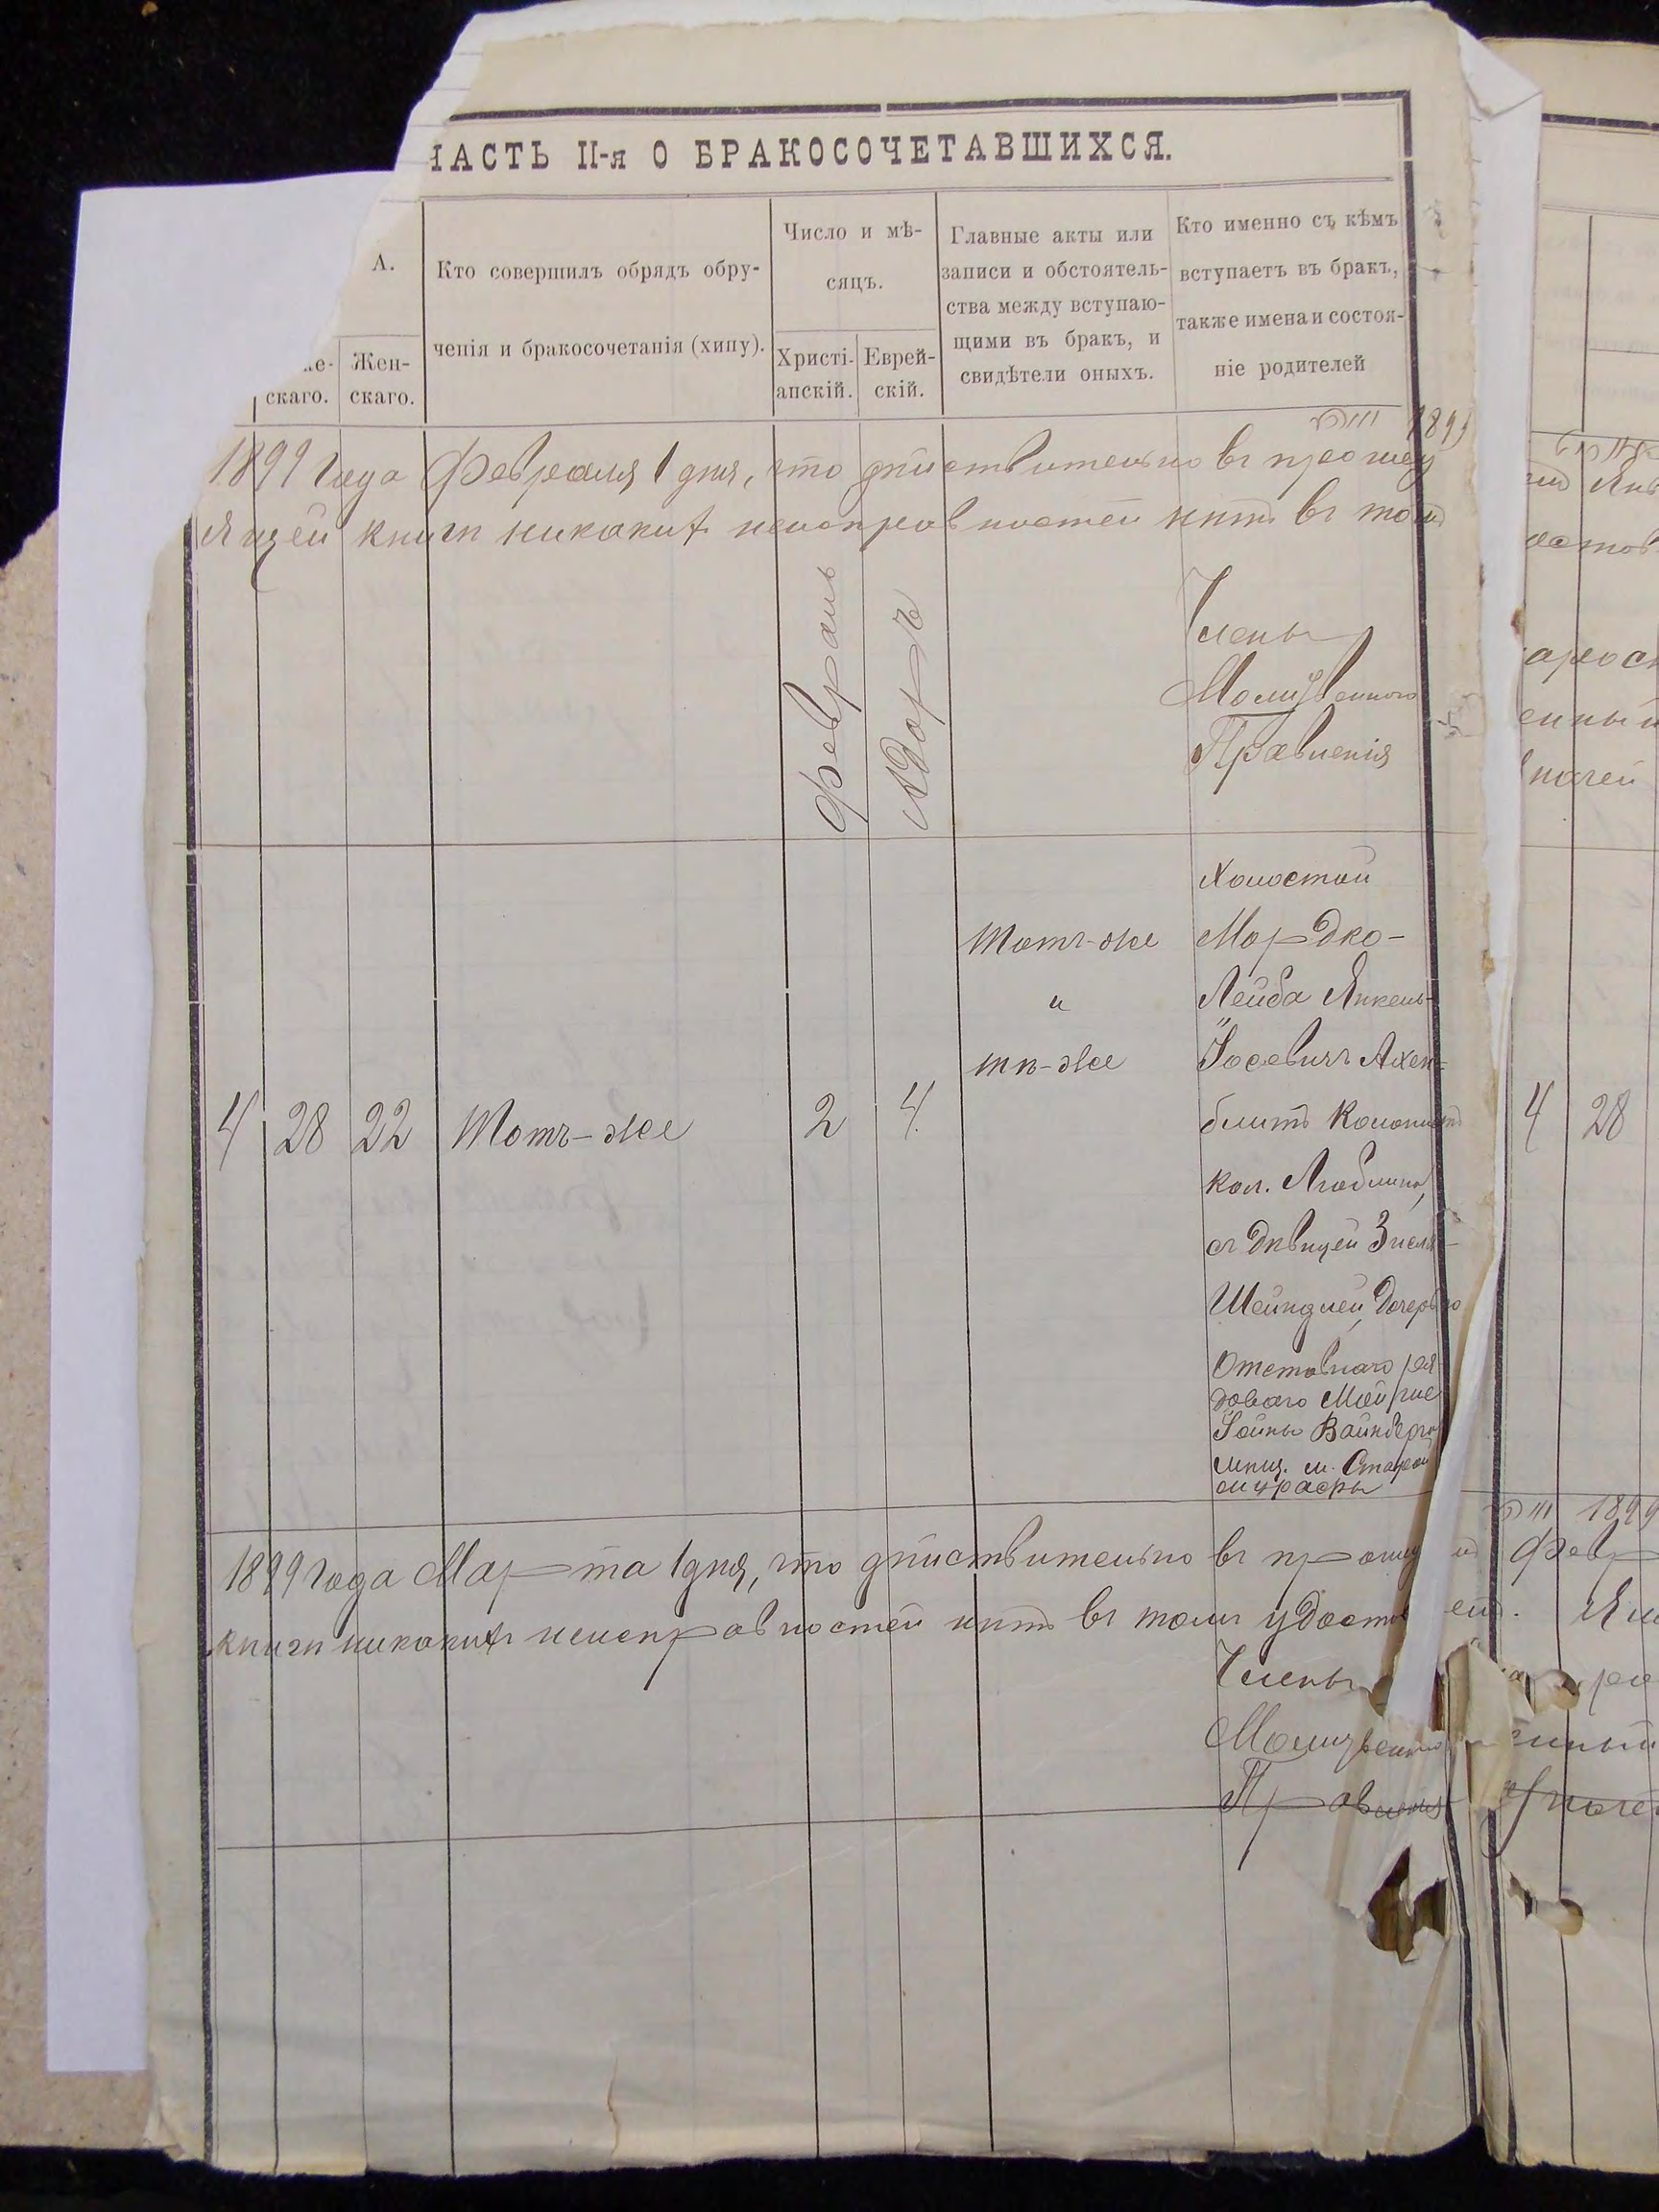 ЧАСТЬ II-я О БРАКОСОЧЕТАВШИХСЯ.
А.
скаго.
Жен-
скаго.
Кто совершилъ обрядъ обру-
ченія и бракосочетанія (хипу).
Число и мѣ-
сяцъ.
Христі-
анскій.
Еврей-
скій.
Главные акты или
записи и обстоятель-
ства между вступаю-
щими въ бракъ, и
свидѣтели оныхъ.
Кто именно съ кѣмъ
вступаетъ въ бракъ,
также имена и состоя-
ніе родителей
1899 года Февраля 1 дня, что дѣйствительно въ
книги никакихъ неисправностей нѣтъ въ томъ
Февраль
Адаръ
Члены
Молитвенного
Правленія
4
28
22
Тотъ-же
2
4
Тотъ-же
и
тѣ-же
Холостой
Мордко-
Лейба Янкель-
Іосевичъ Ахен-
блитъ Колонистъ
кол. Люблина,
съ Дѣвицей
Шейндлей, Дочерью
Отставнаго ря
доваго
Вайнберга
мѣщ. м. Старой
1899 года Марта 1 дня, что дѣйствительно въ
книги никакихъ неисправностей нѣтъ въ томъ удостов
Члены
Молитвенного
Правленія
4
28
1899